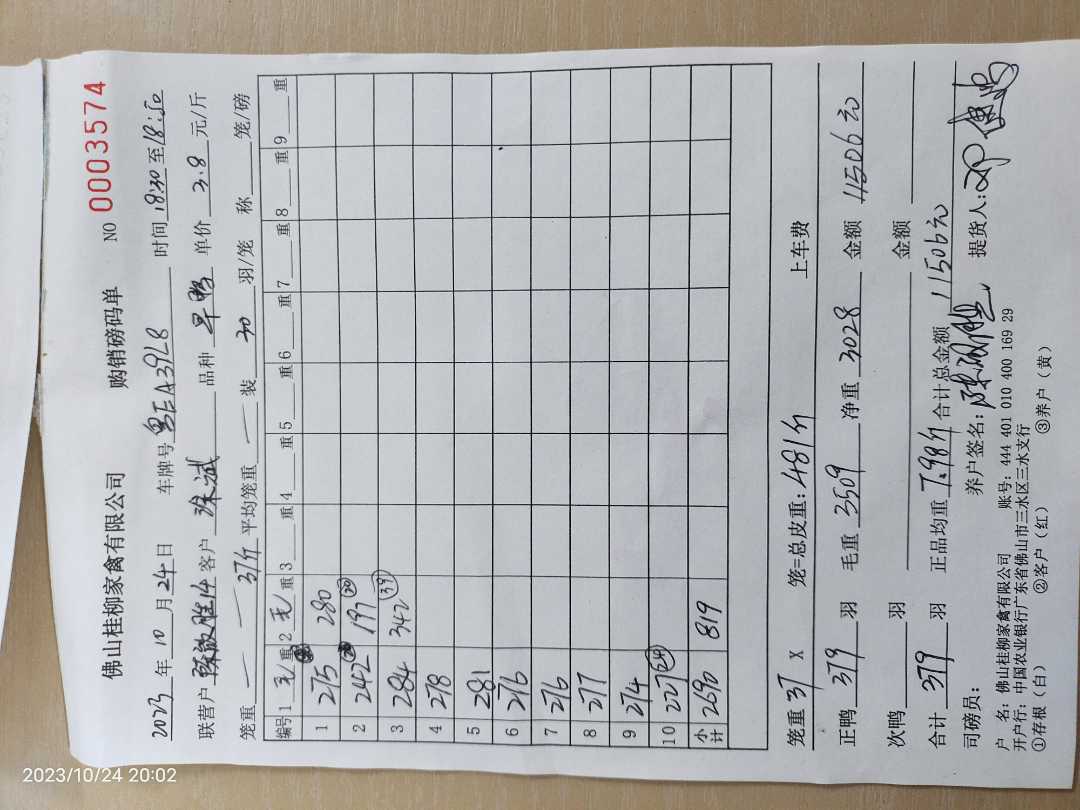 佛山桂柳家禽有限公司 购销磅码单 NO 0003574
2023年10月24日 车牌号粤EA39L8 时间18:30至18:50
联营户 客户 品种 旱鸭 单价3.8元/斤
笼重 一 一 37斤 平均笼重 一 装30羽/笼 称 笼/磅
编号 1毛重 2毛重 3重 4重 5重 6重 7重 8重 9重
1 275 280
2 242 197
3 284 342
4 278
5 281
6 276
7 276
8 277
9 274
10 227
小计 2690 819
笼重37 X 笼=总皮重:481斤 上车费
正鸭379羽 毛重3509 净重3028 金额11506元
次鸭 羽 金额
合计379羽 正品均重7.98斤 合计总金额11506元
司磅员: 养户签名: 提货人:
户 名: 佛山桂柳家禽有限公司 账号: 444 401 010 400 169 29
开户行: 中国农业银行广东省佛山市三水区三水支行
①存根(白) ②客户(红) ③养户(黄)
2023/10/24 20:02